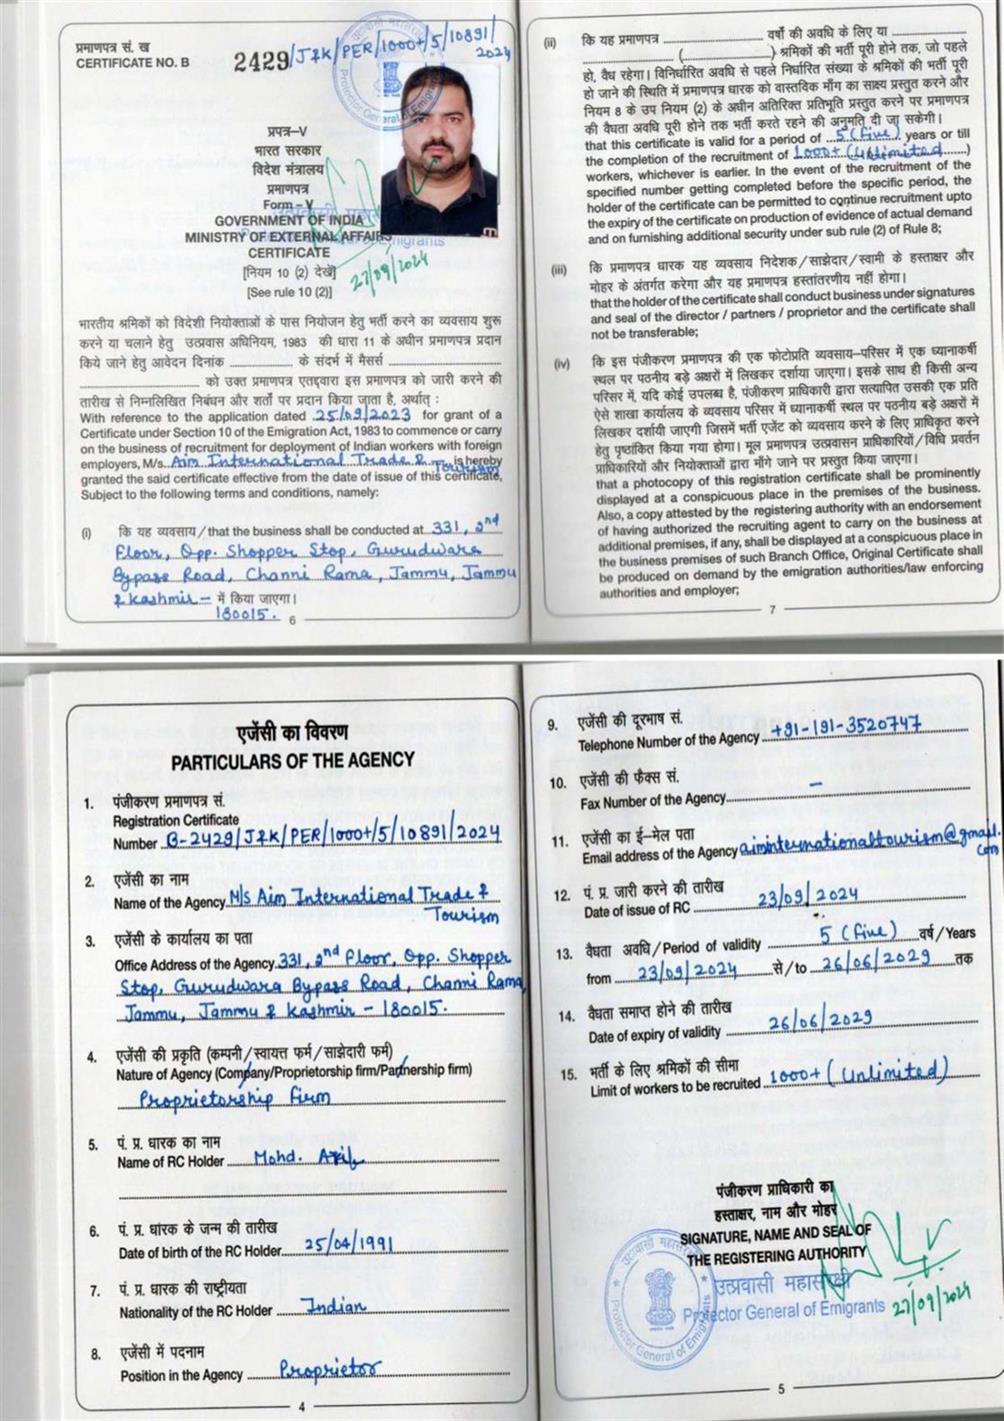 प्रमाणपत्र सं. ख
CERTIFICATE NO. B
2429/J&K/PER/1000+/5/10891/
2024
प्रपत्र–V
भारत सरकार
विदेश मंत्रालय
प्रमाणपत्र
Form – V
GOVERNMENT OF INDIA
MINISTRY OF EXTERNAL AFFAIRS
CERTIFICATE
[नियम 10 (2) देखें]
[See rule 10 (2)]
27/09/2024
Protector General of Emigrants
भारतीय श्रमिकों को विदेशी नियोक्ताओं के पास नियोजन हेतु भर्ती करने का व्यवसाय शुरू
करने या चलाने हेतु उत्प्रवास अधिनियम, 1983 की धारा 11 के अधीन प्रमाणपत्र प्रदान
किये जाने हेतु आवेदन दिनांक ............ के संदर्भ में मैसर्स ............
............ को उक्त प्रमाणपत्र एतद्द्वारा इस प्रमाणपत्र को जारी करने की
तारीख से निम्नलिखित निबंधन और शर्तों पर प्रदान किया जाता है, अर्थात् :
With reference to the application dated 25/09/2023 for grant of a
Certificate under Section 10 of the Emigration Act, 1983 to commence or carry
on the business of recruitment for deployment of Indian workers with foreign
employers, M/s. Aim International Trade & Tourism is hereby
granted the said certificate effective from the date of issue of this certificate,
Subject to the following terms and conditions, namely:
(i) कि यह व्यवसाय / that the business shall be conducted at 331, 2nd
Floor, Opp. Shopper Stop, Gurudwara
Bypass Road, Channi Rama, Jammu, Jammu
& Kashmir – में किया जाएगा।
180015.
6
(ii) कि यह प्रमाणपत्र ............ वर्षों की अवधि के लिए या ............
............(............) श्रमिकों की भर्ती पूरी होने तक, जो पहले
हो, वैध रहेगा। विनिर्धारित अवधि से पहले निर्धारित संख्या के श्रमिकों की भर्ती पूरी
हो जाने की स्थिति में प्रमाणपत्र धारक को वास्तविक माँग का साक्ष्य प्रस्तुत करने और
नियम 8 के उप नियम (2) के अधीन अतिरिक्त प्रतिभूति प्रस्तुत करने पर प्रमाणपत्र
की वैधता अवधि पूरी होने तक भर्ती करते रहने की अनुमति दी जा सकेगी।
that this certificate is valid for a period of 5 (five) years or till
the completion of the recruitment of 1000+ (Unlimited)
workers, whichever is earlier. In the event of the recruitment of the
specified number getting completed before the specific period, the
holder of the certificate can be permitted to continue recruitment upto
the expiry of the certificate on production of evidence of actual demand
and on furnishing additional security under sub rule (2) of Rule 8;
(iii) कि प्रमाणपत्र धारक यह व्यवसाय निदेशक/साझेदार/स्वामी के हस्ताक्षर और
मोहर के अंतर्गत करेगा और यह प्रमाणपत्र हस्तांतरणीय नहीं होगा।
that the holder of the certificate shall conduct business under signatures
and seal of the director / partners / proprietor and the certificate shall
not be transferable;
(iv) कि इस पंजीकरण प्रमाणपत्र की एक फोटोप्रति व्यवसाय–परिसर में एक ध्यानाकर्षी
स्थल पर पठनीय बड़े अक्षरों में लिखकर दर्शाया जाएगा। इसके साथ ही किसी अन्य
परिसर में, यदि कोई उपलब्ध है, पंजीकरण प्राधिकारी द्वारा सत्यापित उसकी एक प्रति
ऐसे शाखा कार्यालय के व्यवसाय परिसर में ध्यानाकर्षी स्थल पर पठनीय बड़े अक्षरों में
लिखकर दर्शायी जाएगी जिसमें भर्ती एजेंट को व्यवसाय करने के लिए प्राधिकृत करने
हेतु पृष्ठांकित किया गया होगा। मूल प्रमाणपत्र उत्प्रवासन प्राधिकारियों/विधि प्रवर्तन
प्राधिकारियों और नियोक्ताओं द्वारा माँगे जाने पर प्रस्तुत किया जाएगा।
that a photocopy of this registration certificate shall be prominently
displayed at a conspicuous place in the premises of the business.
Also, a copy attested by the registering authority with an endorsement
of having authorized the recruiting agent to carry on the business at
additional premises, if any, shall be displayed at a conspicuous place in
the business premises of such Branch Office, Original Certificate shall
be produced on demand by the emigration authorities/law enforcing
authorities and employer;
7
एजेंसी का विवरण
PARTICULARS OF THE AGENCY
1. पंजीकरण प्रमाणपत्र सं.
Registration Certificate
Number B-2429/J&K/PER/1000+/5/10891/2024
2. एजेंसी का नाम
Name of the Agency M/s Aim International Trade &
Tourism
3. एजेंसी के कार्यालय का पता
Office Address of the Agency 331, 2nd Floor, Opp. Shopper
Stop, Gurudwara Bypass Road, Channi Rama,
Jammu, Jammu & Kashmir – 180015.
4. एजेंसी की प्रकृति (कम्पनी/स्वायत्त फर्म/साझेदारी फर्म)
Nature of Agency (Company/Proprietorship firm/Partnership firm)
Proprietorship Firm
5. पं. प्र. धारक का नाम
Name of RC Holder Mohd. Arif
6. पं. प्र. धारक के जन्म की तारीख
Date of birth of the RC Holder 25/04/1991
7. पं. प्र. धारक की राष्ट्रीयता
Nationality of the RC Holder Indian
8. एजेंसी में पदनाम
Position in the Agency Proprietor
4
9. एजेंसी की दूरभाष सं.
Telephone Number of the Agency +91-191-3520747
10. एजेंसी की फैक्स सं.
Fax Number of the Agency –
11. एजेंसी का ई–मेल पता
Email address of the Agency aiminternationaltourism@gmail.
com
12. पं. प्र. जारी करने की तारीख
Date of issue of RC 23/09/2024
13. वैधता अवधि/Period of validity 5 (five) वर्ष/Years
from 23/09/2024 से/to 26/06/2029 तक
14. वैधता समाप्त होने की तारीख
Date of expiry of validity 26/06/2029
15. भर्ती के लिए श्रमिकों की सीमा
Limit of workers to be recruited 1000+ (Unlimited)
पंजीकरण प्राधिकारी का
हस्ताक्षर, नाम और मोहर
SIGNATURE, NAME AND SEAL OF
THE REGISTERING AUTHORITY
उत्प्रवासी महासंरक्षी
Protector General of Emigrants
27/09/2024
Protector General of Emigrants
5